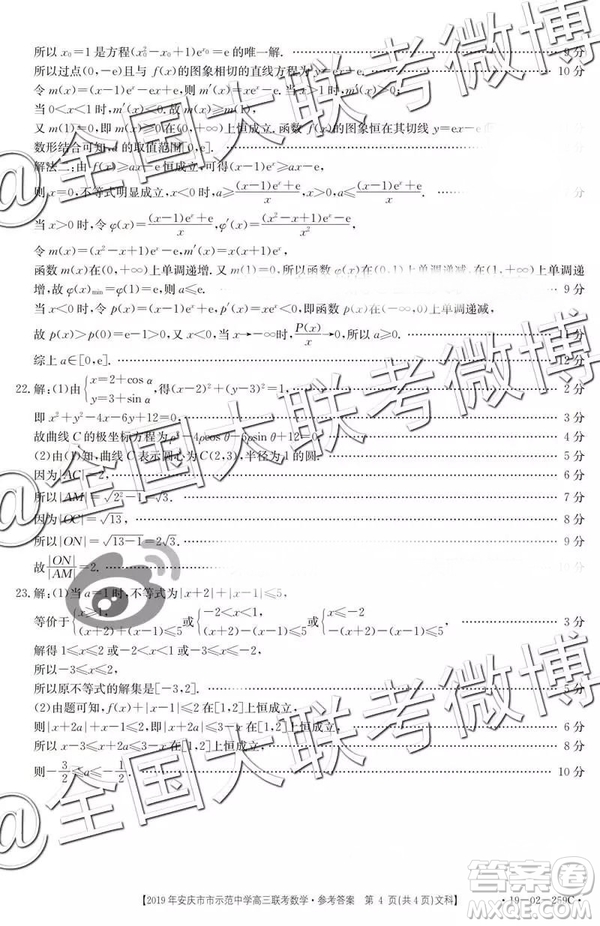 所以 x₀=1 是方程(x₀²-x₀+1)e^{x₀}=e 的唯一解. 9 分
所以过点(0,-e)且与 f(x)的图象相切的直线方程为 y=ex-e. 10 分
令 m(x)=(x-1)eˣ-ex+e,则 m′(x)=xeˣ-e,
当 0<x<1 时,m′(x)<0.故 m(x)
又 m(1)=0,在(0,+∞)上恒成立.函数 f(x)的图象恒在其切线 y=ex-e
数形结合可知, 的取值范围[0,e].
解法二:由 f(x)≥ax-e 恒成立,可得(x-1)eˣ≥ax-e,
则 x=0,不等式明显成立,x<0 时,a≥((x-1)eˣ+e)/x
当 x>0 时,令 φ(x)=((x-1)eˣ+e)/x,φ′(x)=
令 m(x)=(x²-x+1)eˣ-e,m′(x)=(x²+x)eˣ,
函数 m(x)在(0,+∞)上单调递增.又 m(1)=0,所以函数 φ(x)在(0,1)上单调递减,在(1,+∞)上单调递
增,故 φ(x)min=φ(1)=e,则 a≤e. 9 分
当 x<0 时,令 p(x)=(x-1)eˣ+e,p′(x)=xeˣ<0,函数 p(x)在(-∞,0)上单调递减,
故 p(x)>p(0)=e-1>0,又 x→-∞时,P(x)/x→0,所以 a≥0.
综上 a∈[0,e]. 12 分
22.解:(1)由{x=2+cos α, y=3+sin α,得(x-2)²+(y-3)²=1, 2 分
即 x²+y²-4x-6y+12=0, 3 分
故曲线 C 的极坐标方程为 ρ²-4ρcos θ-6ρsin θ+12=0. 4 分
(2)由(1)知,曲线 C 表示圆心为 C(2,3),半径为 1 的圆. 5 分
因为|AC|=2, 6 分
所以|AM|=√(2²-1)=√3. 7 分
因为|OC|=√13, 8 分
所以|ON|=√(13-1)=2√3. 9 分
故|ON|/|AM|=2. 10 分
23.解:(1)当 a=1 时,不等式为|x+2|+|x-1|≤5,
等价于{x≥1, (x+2)+(x-1)≤5 或{-2<x<1, (x+2)-(x-1)≤5 或{x≤-2, -(x+2)-(x-1)≤5 3 分
解得 1≤x≤2 或-2<x<1 或-3≤x≤-2,
所以-3≤x≤2.
所以原不等式的解集是[-3,2]. 5 分
(2)由题可知,|x+2a|+|x-1|≤5 在[1,2]上恒成立,
则|x+2a|+x-1≤6-x 在[1,2]上恒成立, 6 分
则 在[1,2]上恒成立,
所以 在[1,2]上恒成立, 8 分
则-3/2≤a≤-1/2. 10 分
【2019 年安庆市市示范中学高三联考数学·参考答案 第 4 页(共 4 页)文科】 ·19-02-259C·
@全国大联考微博
@全国大联考微博
@全国大联考微博
答案圈
MXQE.COM